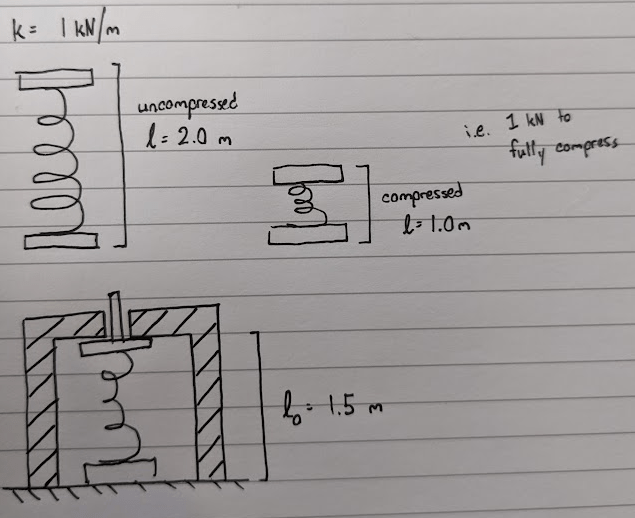 k = 1 kN/m
uncompressed
l = 2.0 m
i.e. 1 kN to
fully compress
compressed
l = 1.0 m
l₀ = 1.5 m